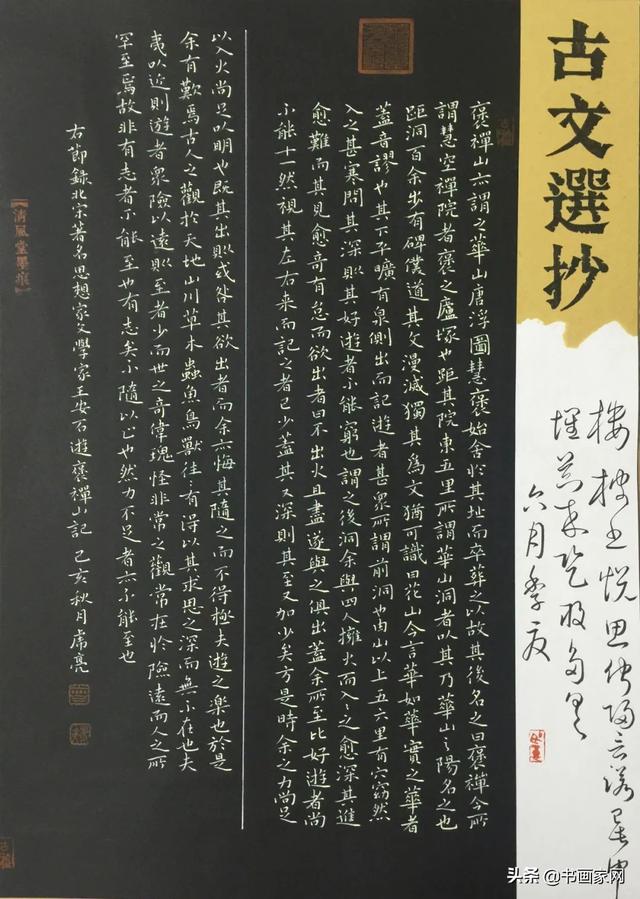 古文選抄
褒禪山亦謂之華山唐浮圖慧褒始舍於其址而卒葬之以故其後名之曰褒禪今所
謂慧空禪院者褒之廬冢也距其院東五里所謂華山洞者以其乃華山之陽名之也
距洞百余步有碑僕道其文漫滅獨其為文猶可識曰花山今言華如華實之華者
蓋音謬也其下平曠有泉側出而記遊者甚眾所謂前洞也由山以上五六里有穴窈然
入之甚寒問其深則其好遊者不能窮也謂之後洞余與四人擁火而入々之愈深其進
愈難而其見愈奇有怠而欲出者曰不出火且盡遂與之俱出蓋余所至比好遊者尚
不能十一然視其左右来而記之者已少蓋其又深則其至又加少矣方是時余之力尚足
以入火尚足以明也既其出則或咎其欲出者而余亦悔其隨之而不得極夫遊之樂也於是
余有歎焉古人之觀於天地山川草木蟲魚鳥獸往有得以其求思之深而無不在也夫
夷以近則遊者眾險以遠則至者少而世之奇偉瑰怪非常之觀常在於險遠而人之所
罕至焉故非有志者不能至也有志矣不隨以止也然力不足者亦不能至也
右節錄北宋著名思想家文學家王安石遊褒禪山記 己亥秋月席亮
清風堂墨痕
头条 @书画家网